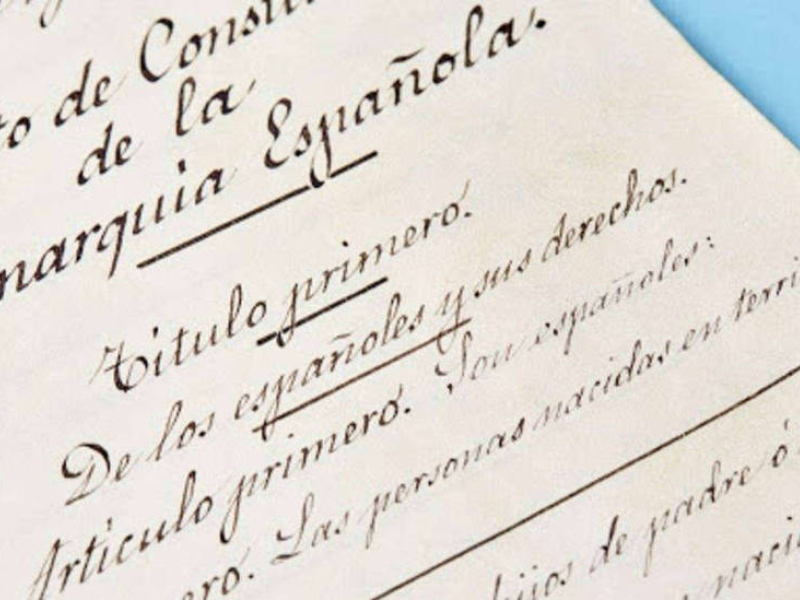 de Consti
de la
narquia Española.
Título primero.
De los españoles y sus derechos.
Artículo primero. Son españoles:
ero. Las personas nacidas en terri
hijos de padre ó
naci